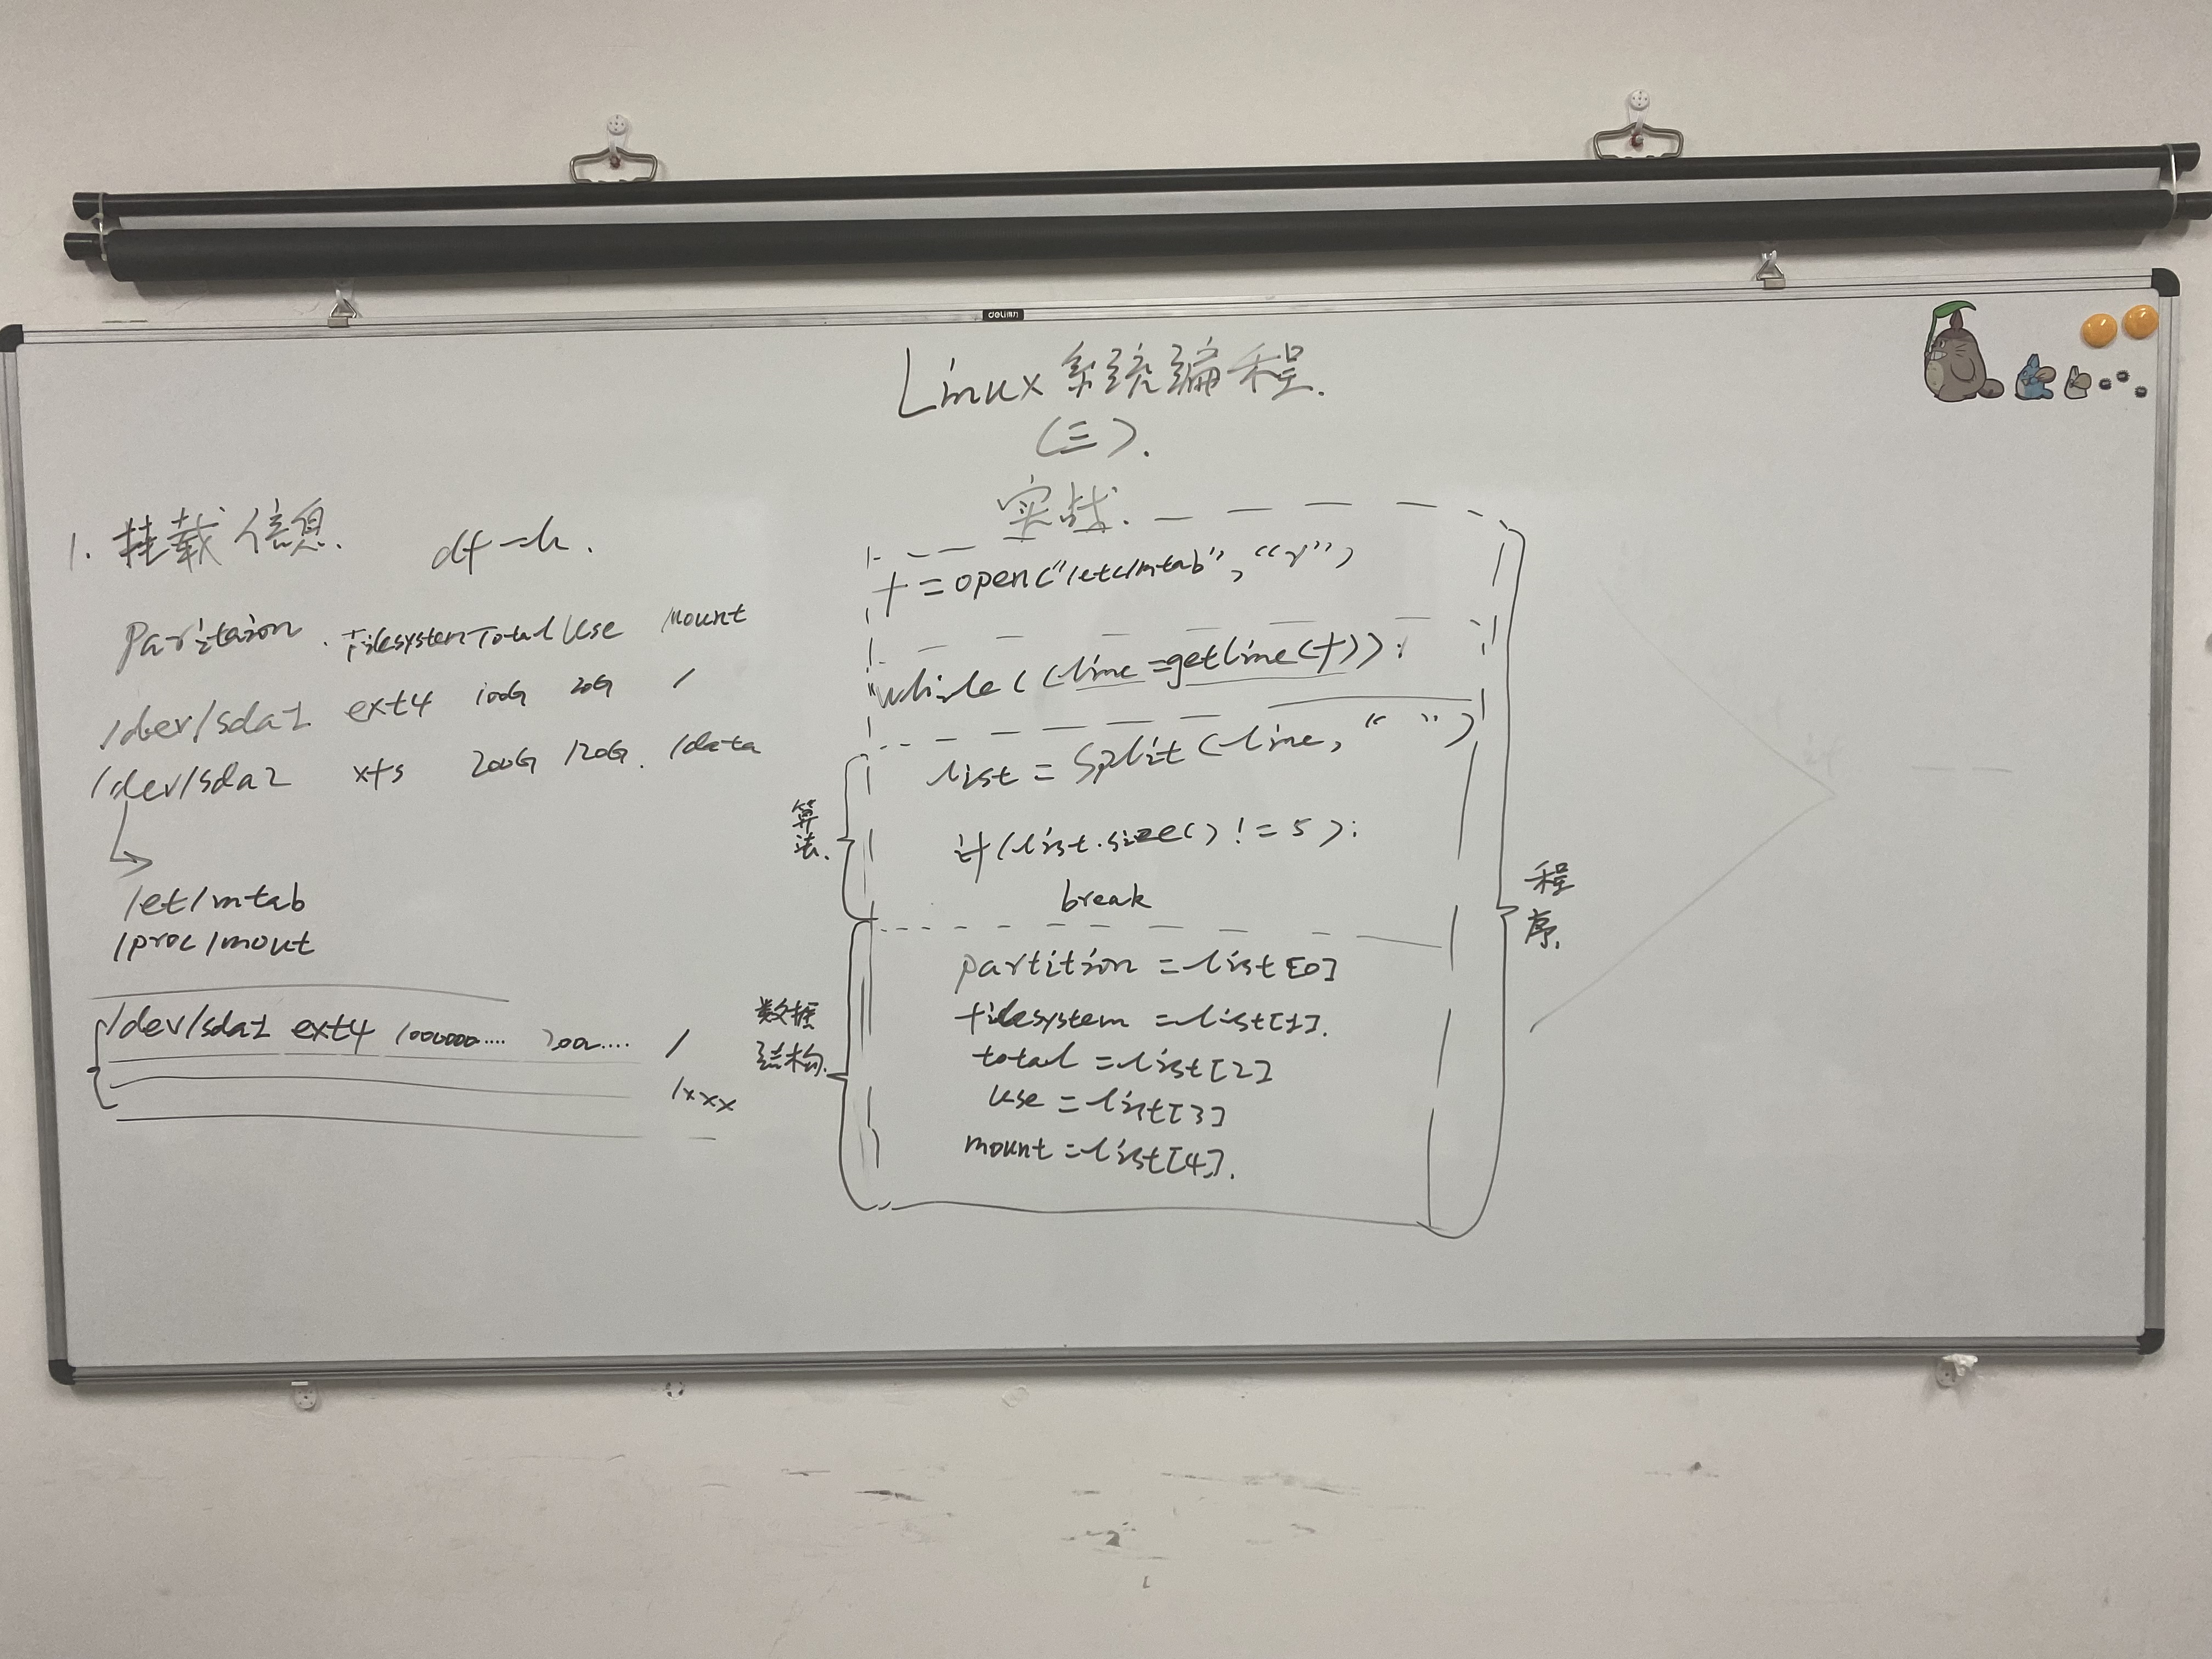 deli
Linux 系统编程.
(三).
实战.
1. 挂载信息. df -h.
Paritaion. Filesystem Total Use Mount
/dev/sda1 ext4 100G 20G /
/dev/sda2 xfs 200G 120G. /data
/et/mtab
/proc/mout
/dev/sda1 ext4 1000000.... 200.... /
/xxx
f = open("/etc/mtab", "r")
while((line = getline(f)):
list = split(line, " ")
if(list.size() != 5):
break
partition = list[0]
filesystem = list[1].
total = list[2]
use = list[3]
mount = list[4].
算法.
数据结构.
程序.